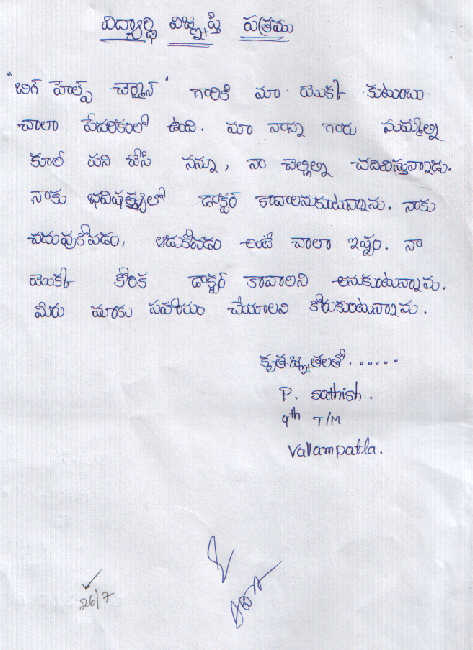 విద్యార్థి విజ్ఞప్తి పత్రము
"బిగ్ హెల్ప్ చైర్మైన్" గారికి మా యొక్క కుటుంబం
చాలా పేదరికంలో ఉంది. మా నాన్న గారు మమ్మల్ని
కూలీ పని చేసి నన్ను, నా చెల్లిల్ని చదివిస్తున్నాడు.
నాకు భవిషత్త్యులో డాక్టర్ కావాలనుకుంటున్నాను. నాకు
చదువుకోవడం, ఆడుకోవడం అంటే చాలా ఇష్టం. నా
యొక్క కోరిక డాక్టర్ కావాలని అనుకుంటున్నాను.
మీరు మాకు సహాయం చేయాలని కోరుకుంటున్నాను.
కృతజ్ఞతలతో......
P. sathish.
9th T/M
Vallampatla.
26/7